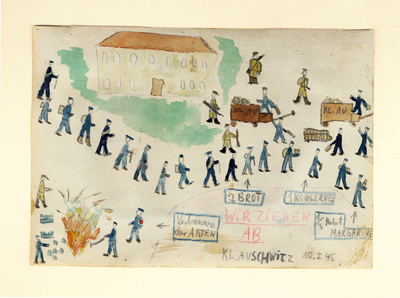 KL. AU
2 BROT
1 KONSERVE
Verbrennen
der AKTEN
WIR ZIEHEN
AB
½ Paket
MARGARINE
KL. AUSCHWITZ 10.I.45